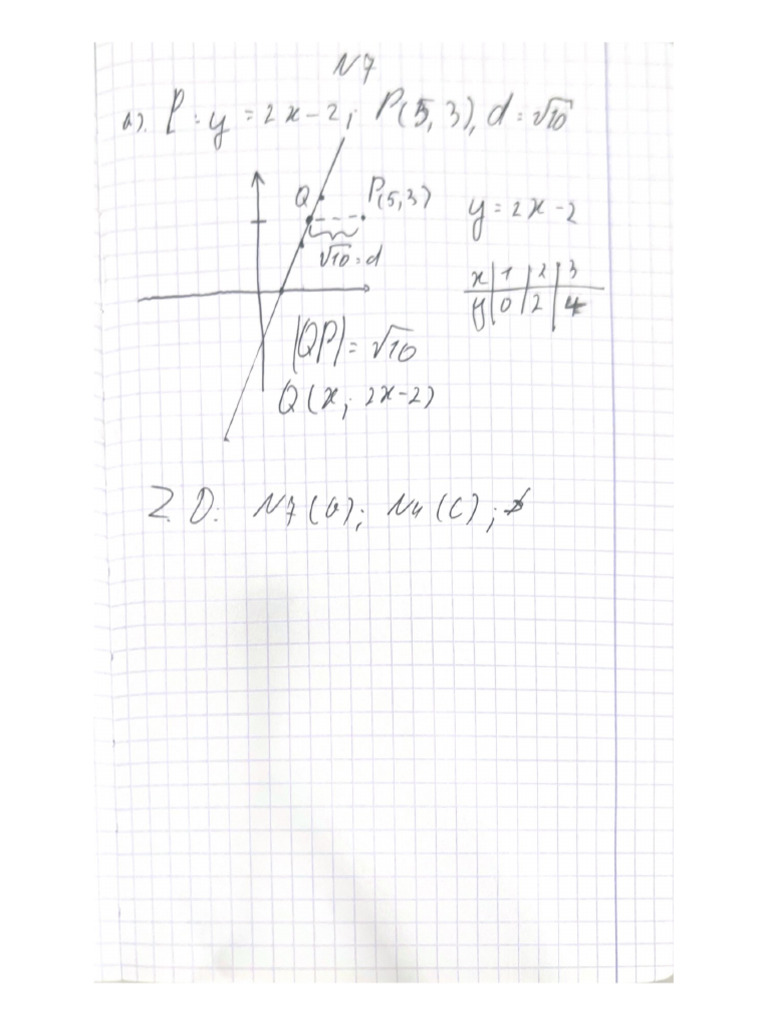 N7
a). l: y = 2x - 2; P(5, 3), d = √10
Q
P(5,3)
√10 = d
y = 2x - 2
x | 1 | 2 | 3
y | 0 | 2 | 4
|QP| = √10
Q(x; 2x-2)
Z. D: N7 (a); N4 (c);